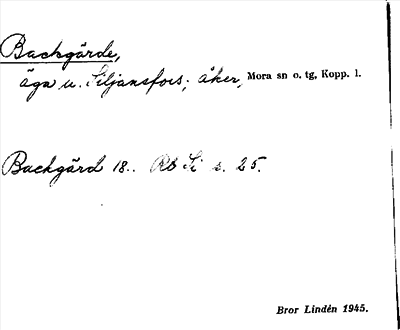 Backgärde,
äga u. Siljansfors; åker, Mora sn o. tg, Kopp. l.
Backgärd 18.. Rb Si s. 25.
Bror Lindén 1945.